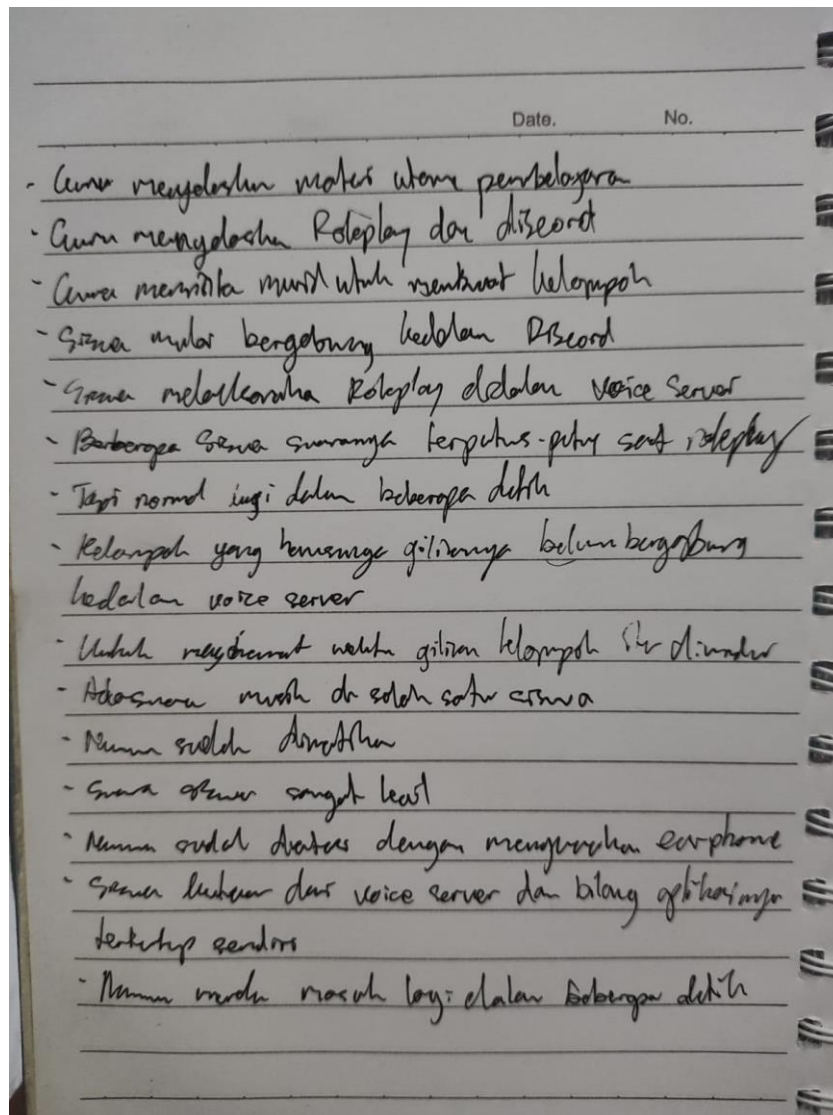 Date. No.
- Guru menjelaskan materi utama pembelajara
- Guru menjelaska Roleplay dan discord
- Guru meminta murid untuk membuat kelompok
- Siswa mulai bergabung kedalam Discord
- Siswa Roleplay didalam voice server
- Beberapa siswa suaranya terputus-putus saat roleplay
- Tapi normal lagi dalam beberapa detik
- Kelompok yang gilirannya belum bergabung
kedalam voice server
- Untuk menghemat waktu giliran kelompok itu dimundur
- Ada suara musik di salah satu siswa
- Namun sudah dimatikan
- Suara siswa sangat kecil
- Namun sudah diatasi dengan menggunakan earphone
- Siswa keluar dari voice server dan bilang aplikasinya
tertutup sendiri
- Namun mereka masuk lagi dalam beberapa detik